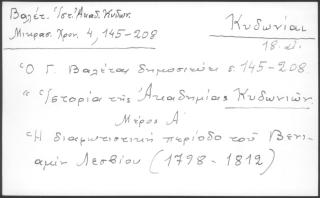 Βαλέτ. Ἱστ. Ἀκαδ. Κυδων.
Μικρασ. Χρον. 4, 145-208
Κυδωνίαι
18.
Ὁ Γ. Βαλέτας δημοσιεύει σ. 145-208
"Ἱστορία τῆς Ἀκαδημίας Κυδωνιῶν.
Μέρος Α΄
Ἡ διαφωτιστική περίοδο τοῦ Βενι-
αμίν Λεσβίου (1798-1812)